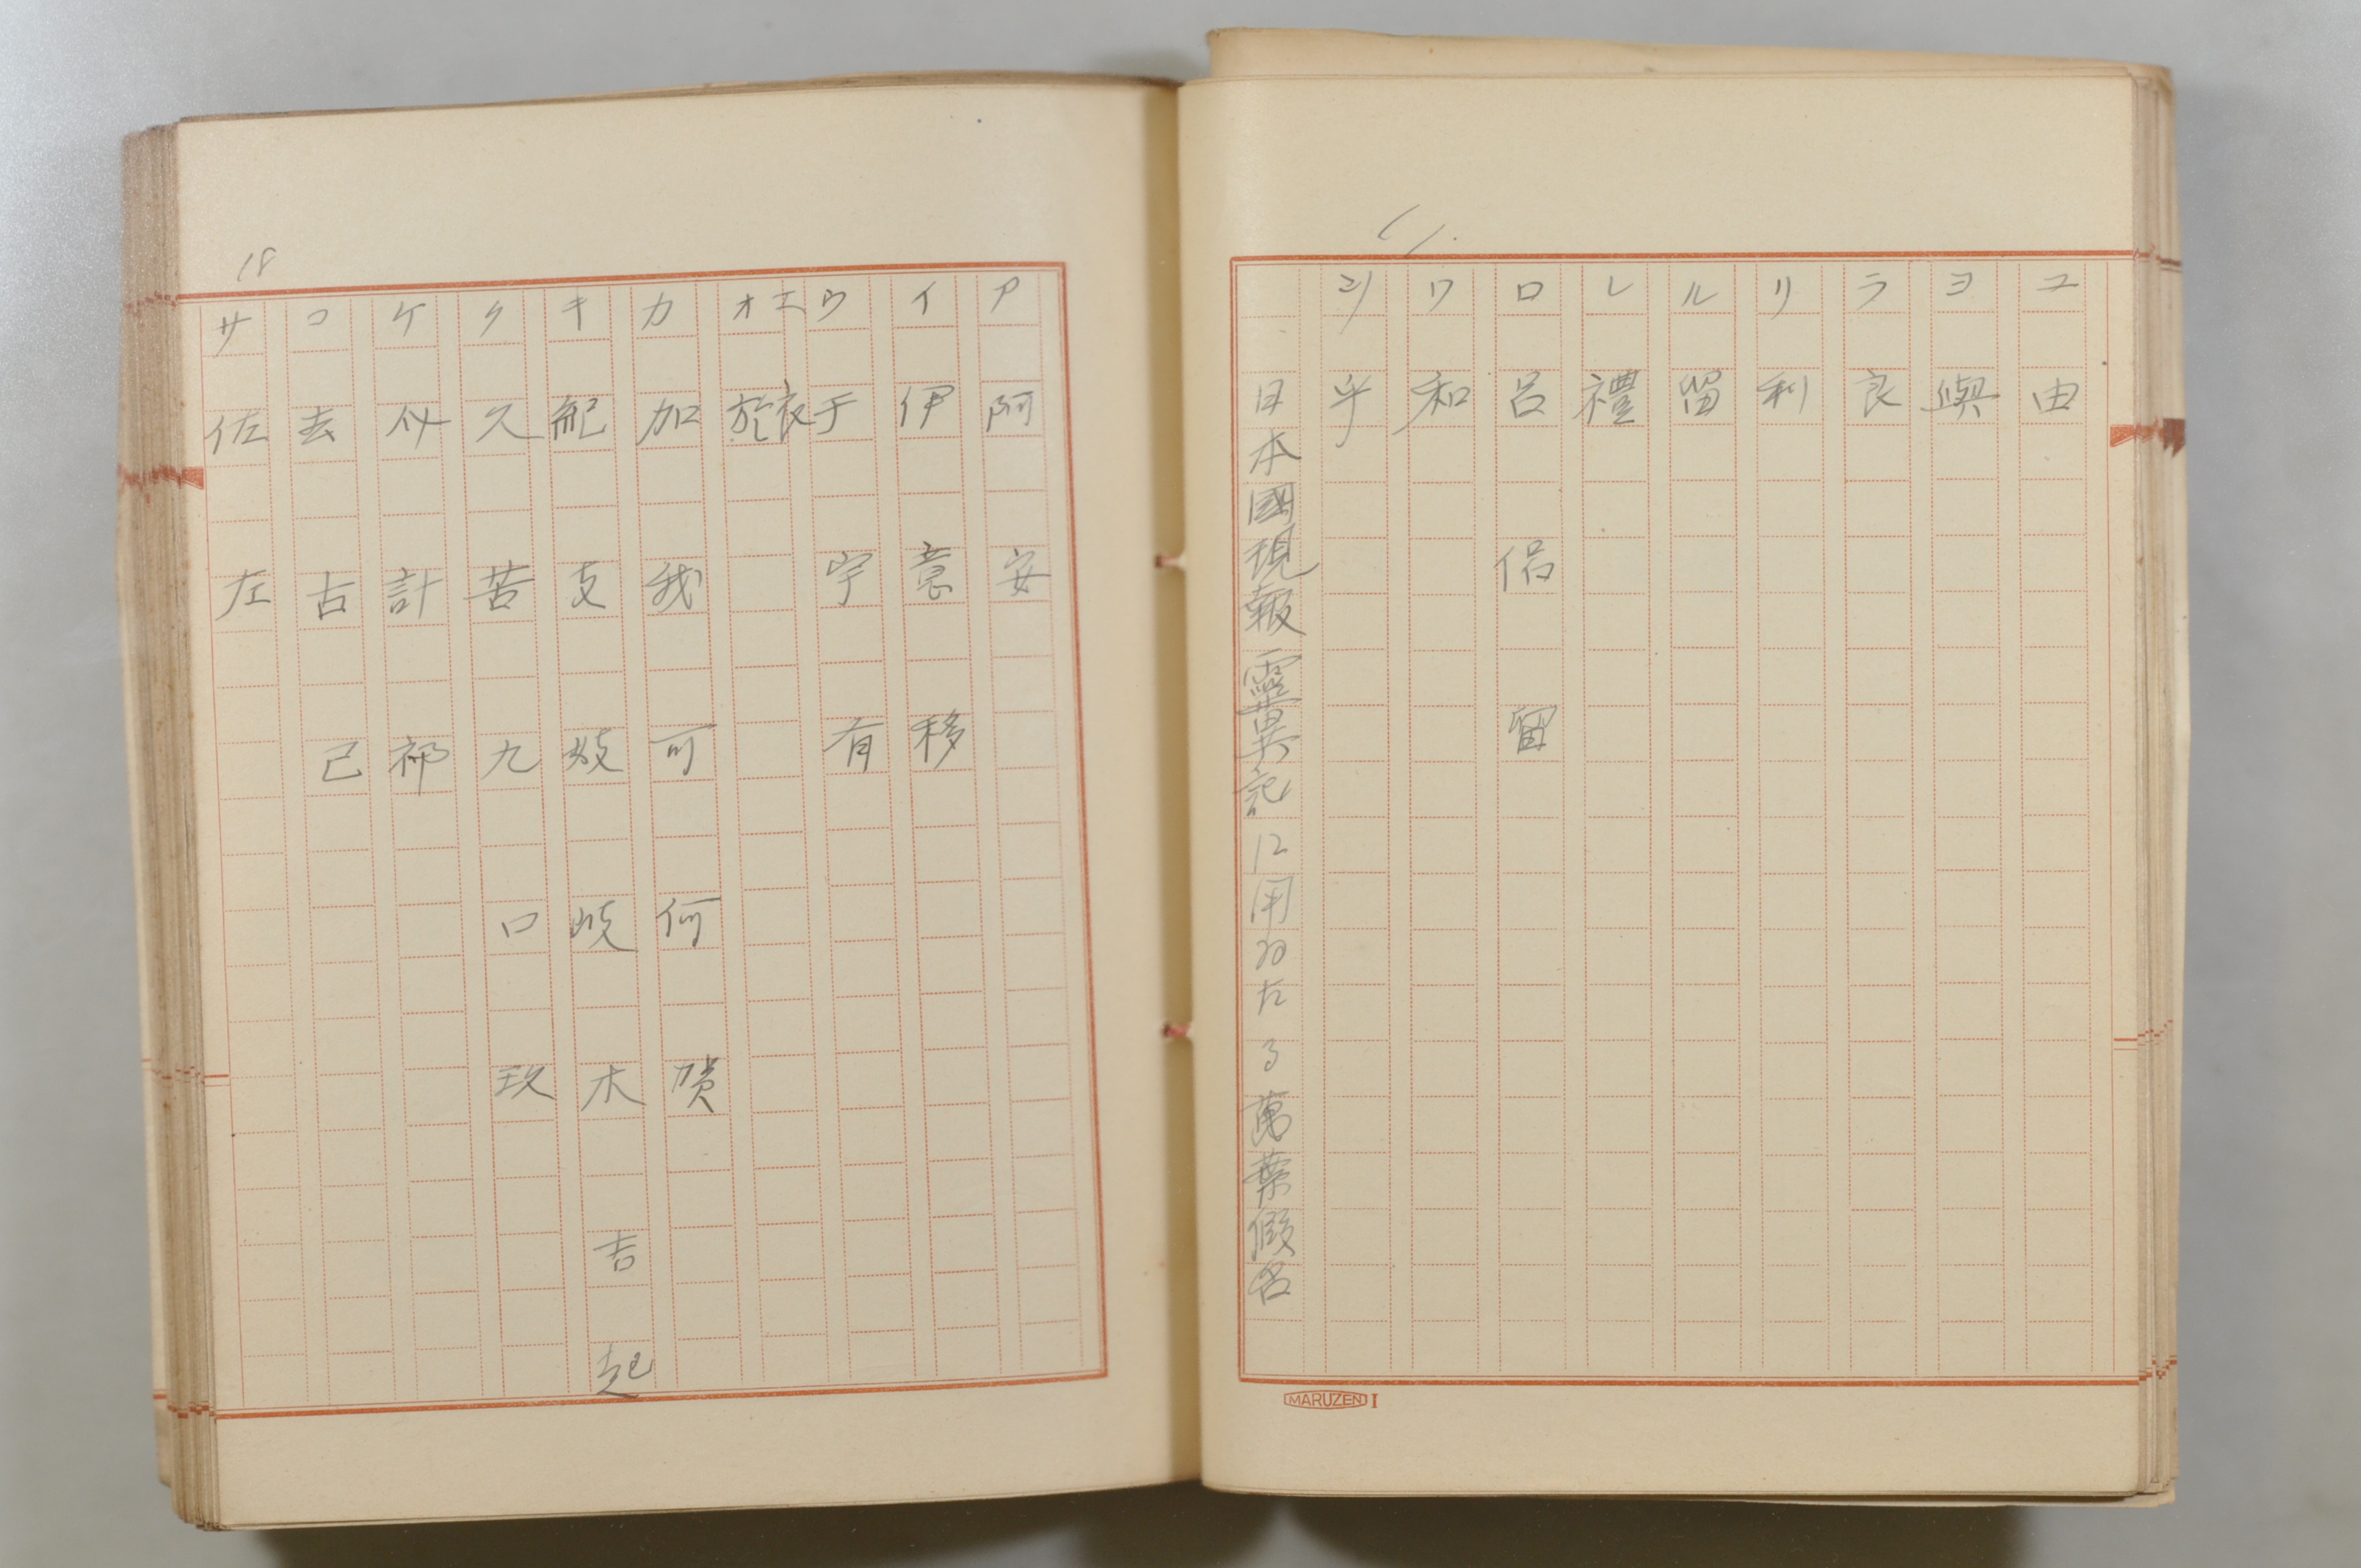 ユ 由
ヨ 與
ラ 良
リ 利
ル 留
レ 禮
ロ 呂 侶 留
ワ 和
乎
日本國現報靈異記に用ゐたる萬葉假名
MARUZEN I
18
ア 阿 安
イ 伊 意 移
ウ 于 宇 有
エ 衣
オ 於
カ 加 我 可 何 賀
キ 紀 支 妓 岐 木 吉 起
ク 久 苦 九 口 玖
ケ 計 祁
コ 去 古 己
サ 佐 左